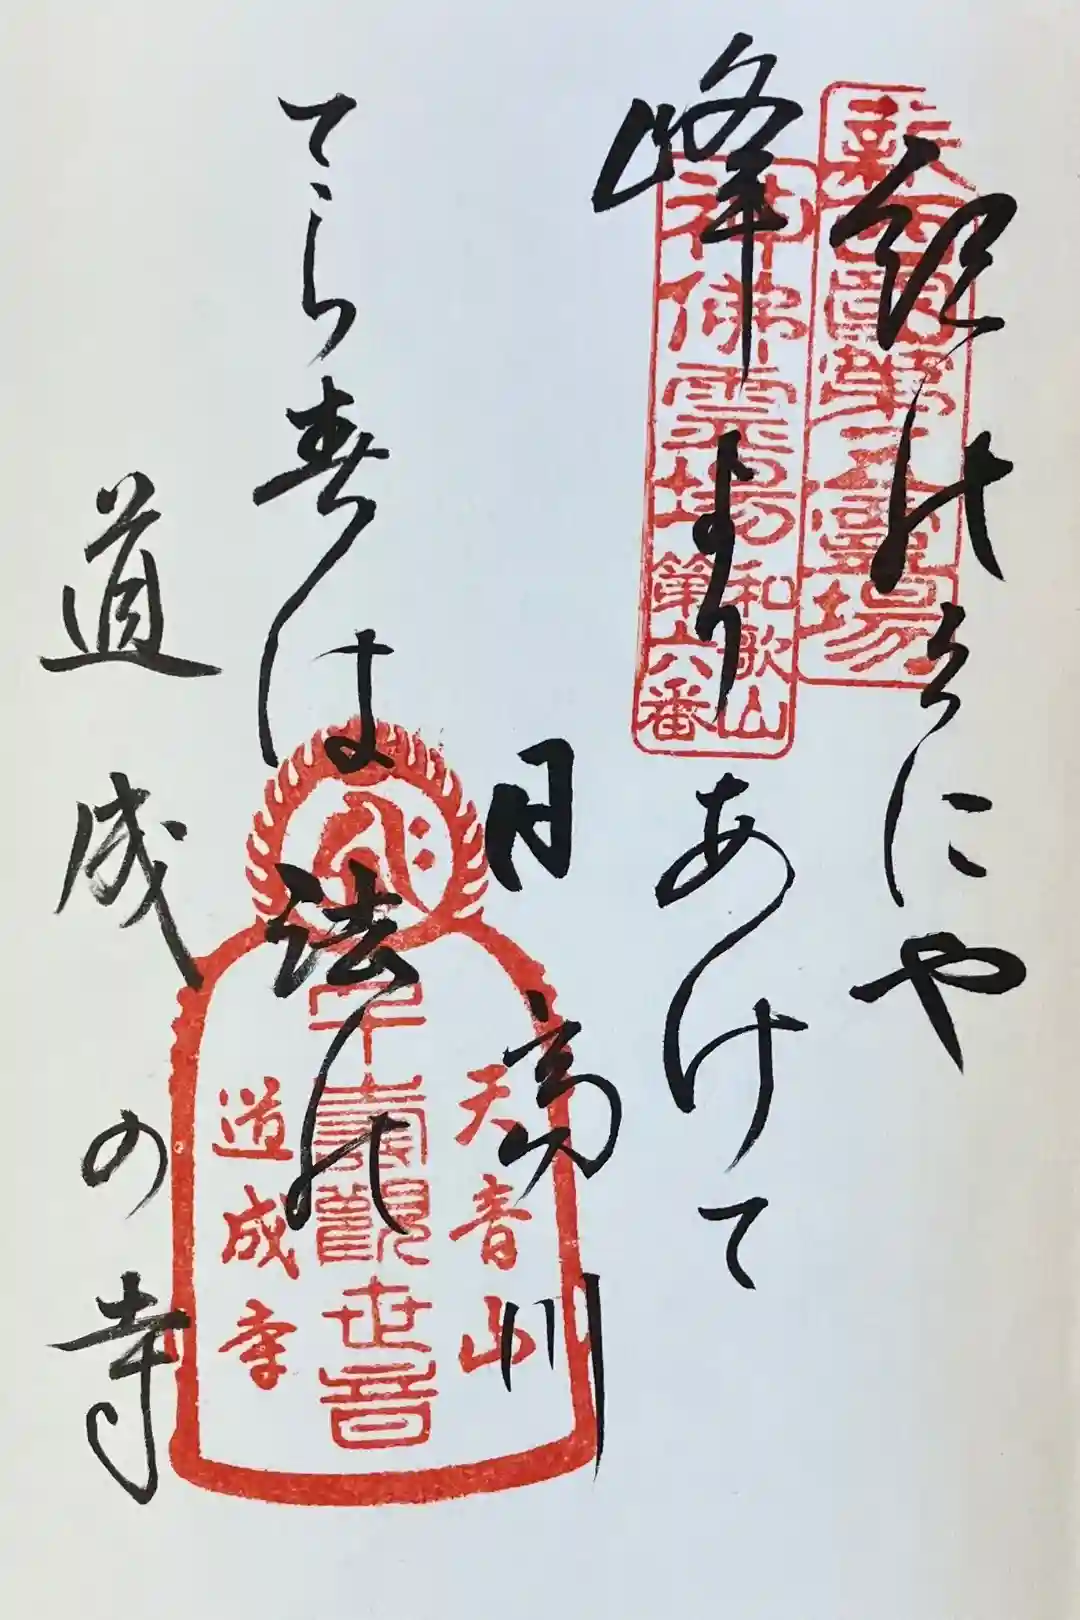 紀のくにや
峰よりあけて
日高川
てら春は法の
道成の寺
新西國第五霊場
神佛霊場
和歌山
第六番
天音山
千手觀世音
道成寺